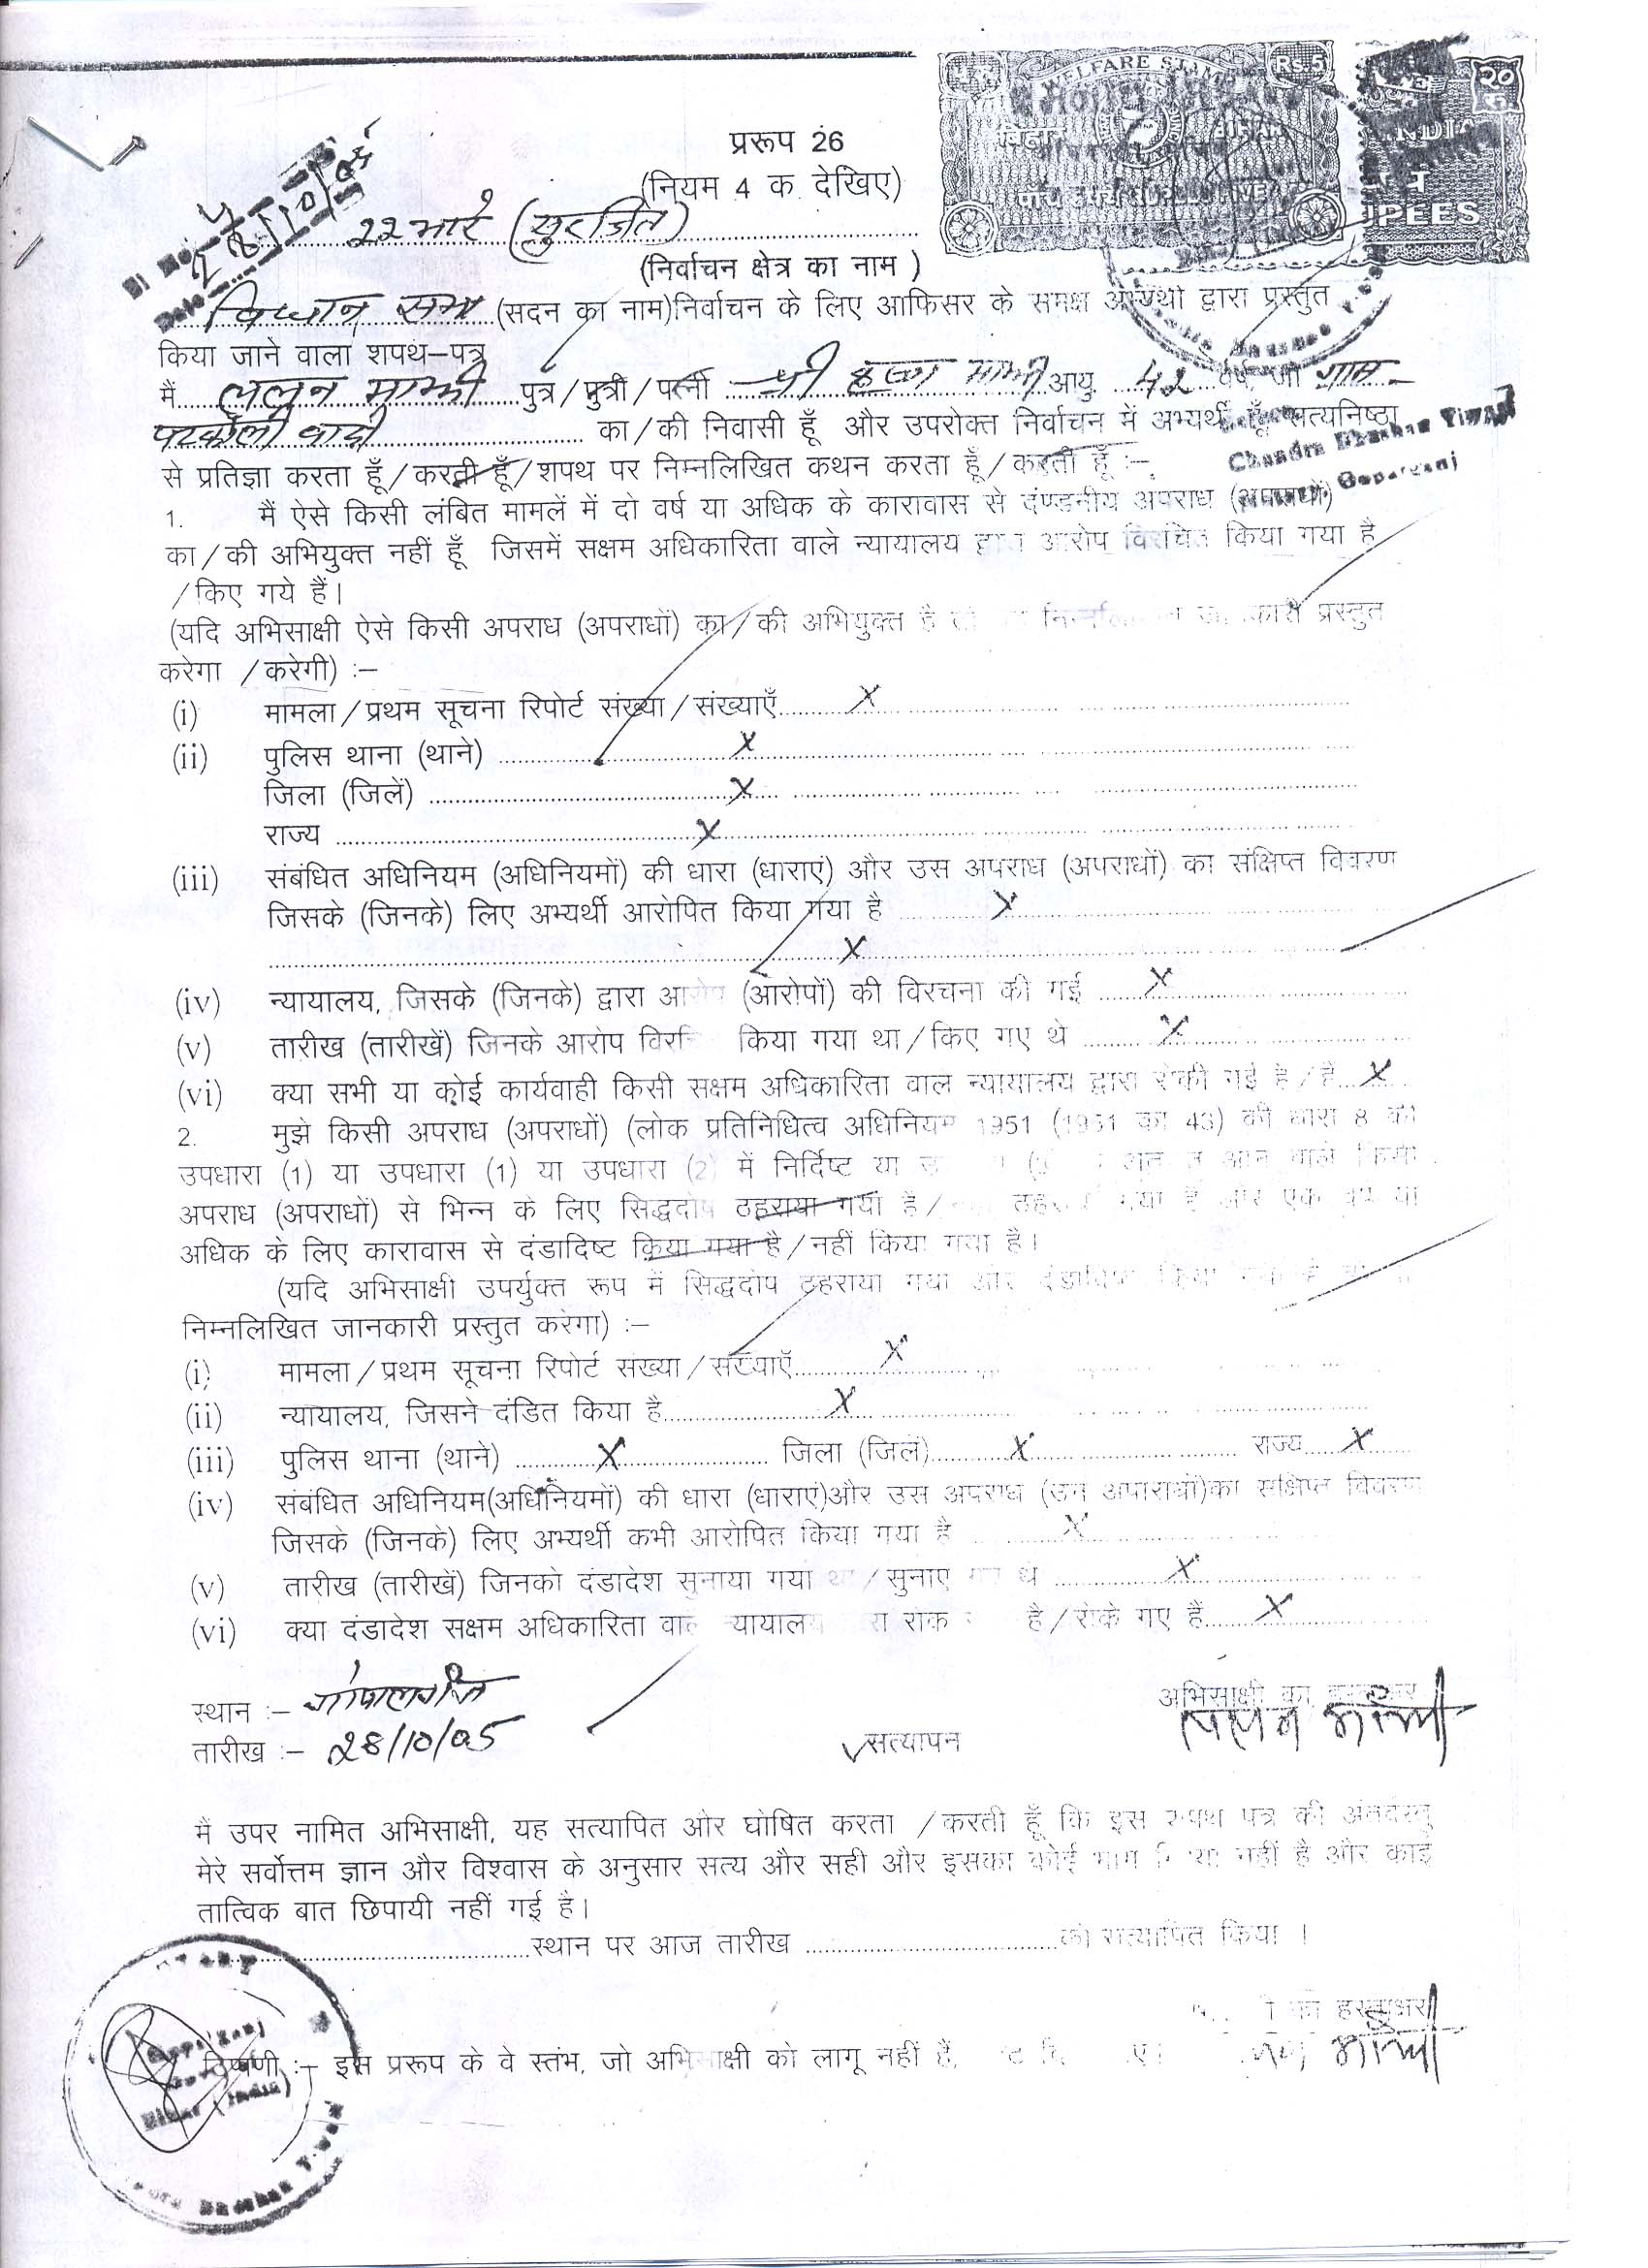 WELFARE STAMP
Rs.5
२०
रु.
बिहार
BIHAR
INDIA
RUPEES
प्ररूप 26
(नियम 4 क देखिए)
(सुरक्षित)
(निर्वाचन क्षेत्र का नाम )
विधान सभा (सदन का नाम)निर्वाचन के लिए आफिसर के समक्ष अभ्यर्थी द्वारा प्रस्तुत
किया जाने वाला शपथ–पत्र
मैं ललन माझी पुत्र/पुत्री/पत्नी श्री कृष्णा माझी आयु 42 वर्ष, जो ग्राम –
का/की निवासी हूँ और उपरोक्त निर्वाचन में अभ्यर्थी हूँ, सत्यनिष्ठा
Chandra Bhushan
Gopalganj
से प्रतिज्ञा करता हूँ/करती हूँ/शपथ पर निम्नलिखित कथन करता हूँ/करती हूँ :–
1. मैं ऐसे किसी लंबित मामलें में दो वर्ष या अधिक के कारावास से दंण्डनीय अपराध (अपराधों)
का/की अभियुक्त नहीं हूँ जिसमें सक्षम अधिकारिता वाले न्यायालय द्वारा आरोप विरचित किया गया है
/किए गये हैं।
(यदि अभिसाक्षी ऐसे किसी अपराध (अपराधों) का/की अभियुक्त है प्रस्तुत
करेगा /करेगी) :–
(i) मामला/प्रथम सूचना रिपोर्ट संख्या/संख्याएँ X
(ii) पुलिस थाना (थाने) X
जिला (जिलें) X
राज्य X
(iii) संबंधित अधिनियम (अधिनियमों) की धारा (धाराएं) और उस अपराध (अपराधों) का संक्षिप्त विवरण
जिसके (जिनके) लिए अभ्यर्थी आरोपित किया गया है X
X
(iv) न्यायालय, जिसके (जिनके) द्वारा आरोप (आरोपों) की विरचना की गई X
(v) तारीख (तारीखें) जिनके आरोप किया गया था/किए गए थे X
(vi) क्या सभी या कोई कार्यवाही किसी सक्षम अधिकारिता वाले न्यायालय द्वारा रोकी गई है/हैं X
2. मुझे किसी अपराध (अपराधों) (लोक प्रतिनिधित्व अधिनियम 1951 (1951 का 43) की धारा 8 की
उपधारा (1) या उपधारा (1) या उपधारा (2) में निर्दिष्ट या
अपराध (अपराधों) से भिन्न के लिए सिद्धदोष ठहराया गया है/
अधिक के लिए कारावास से दंडादिष्ट किया गया है/नहीं किया गया है।
(यदि अभिसाक्षी उपर्युक्त रूप में सिद्धदोष ठहराया गया और
निम्नलिखित जानकारी प्रस्तुत करेगा) :–
(i) मामला/प्रथम सूचना रिपोर्ट संख्या/संख्याएँ X
(ii) न्यायालय, जिसने दंडित किया है X
(iii) पुलिस थाना (थाने) X जिला (जिलें) X राज्य X
(iv) संबंधित अधिनियम(अधिनियमों) की धारा (धाराएं)और उस अपराध का संक्षिप्त विवरण
जिसके (जिनके) लिए अभ्यर्थी कभी आरोपित किया गया है X
(v) तारीख (तारीखें) जिनको दंडादेश सुनाया गया था/सुनाए गए थे X
(vi) क्या दंडादेश सक्षम अधिकारिता है/रोके गए हैं X
स्थान :– गोपालगंज
अभिसाक्षी का
तारीख :– 28/10/05
सत्यापन
ललन माझी
मैं उपर नामित अभिसाक्षी, यह सत्यापित और घोषित करता /करती हूँ कि इस शपथ पत्र की अंतर्वस्तु
मेरे सर्वोत्तम ज्ञान और विश्वास के अनुसार सत्य और सही और इसका कोई भाग नहीं है और कोई
तात्विक बात छिपायी नहीं गई है।
स्थान पर आज तारीख को सत्यापित किया ।
का हस्ताक्षर
माझी
टिप्पणी :– इस प्ररूप के वे स्तंभ, जो अभिसाक्षी को लागू नहीं हैं,
Bihar (India)